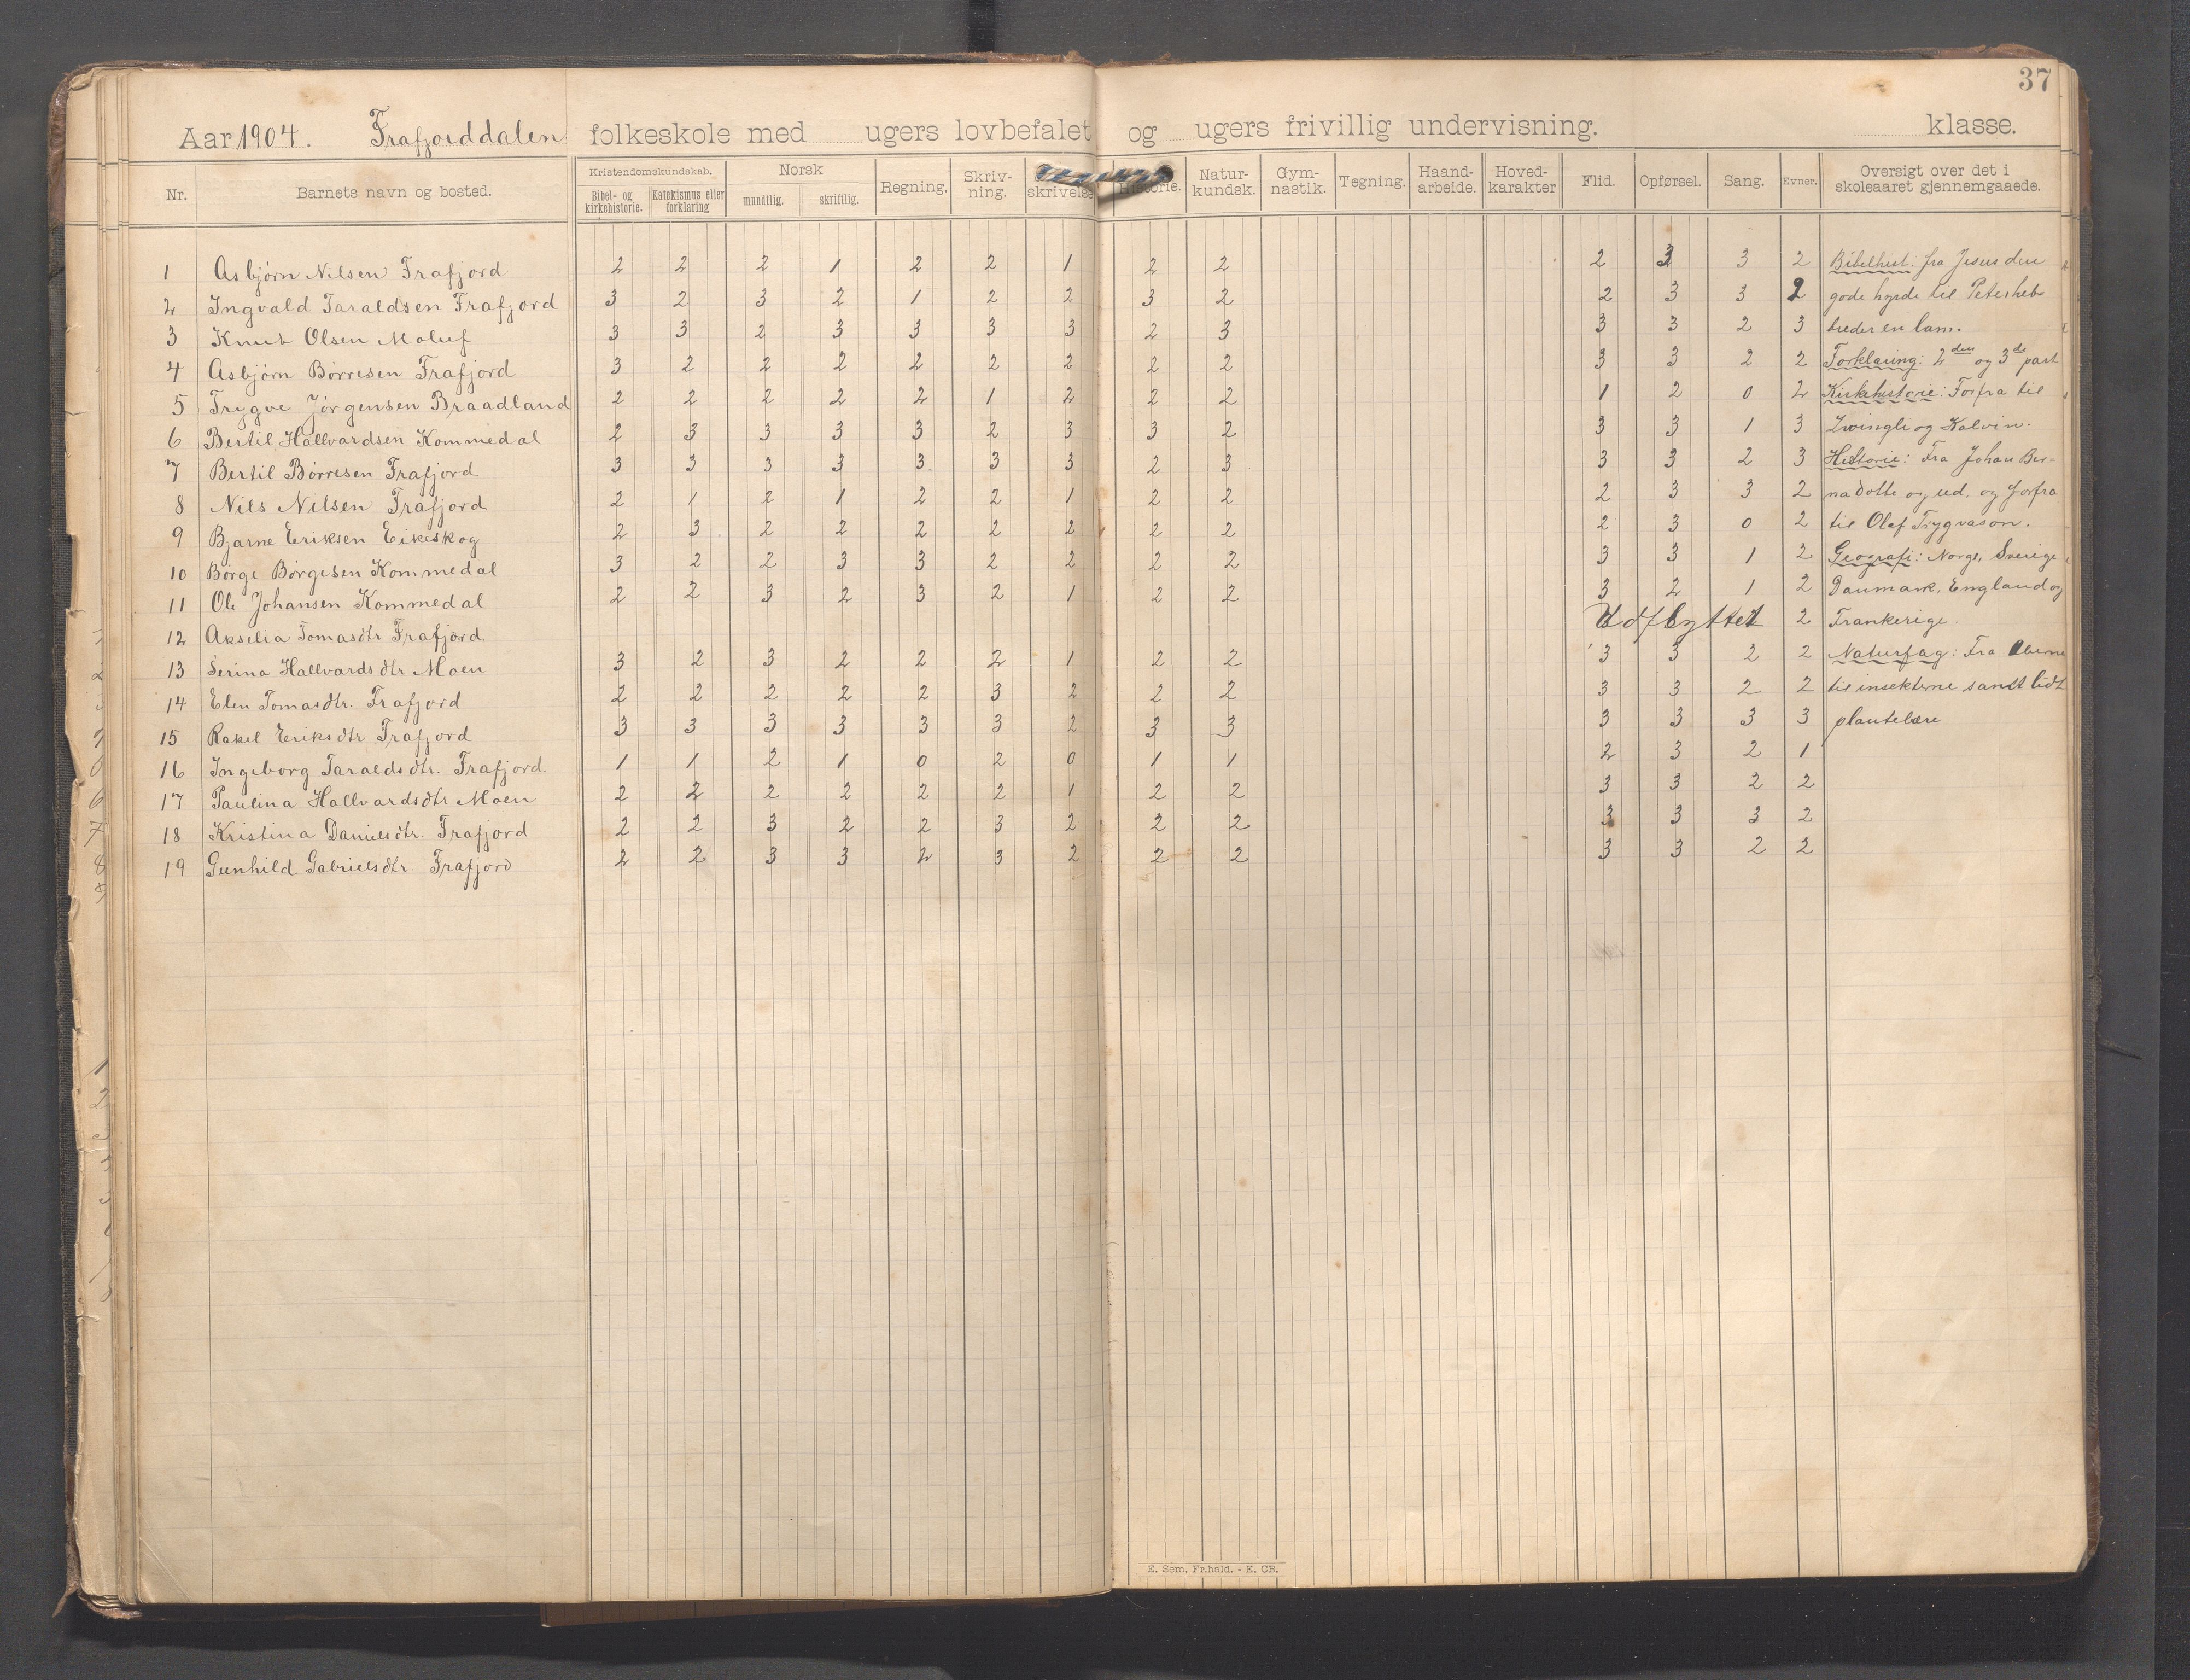 37
Aar 1904. Frafjorddalen folkeskole med ugers lovbefalet og ugers frivillig undervisning. klasse.
Nr. Barnets navn og bosted. Kristendomskundskab. Bibel- og kirkehistorie. Katekismus eller forklaring Norsk mundtlig. skriftlig. Regning. Skriv-ning. skrivelse Historie. Natur-kundsk. Gym-nastik. Tegning. Haand-arbeide. Hoved-karakter Flid. Opførsel. Sang. Evner. Oversigt over det i skoleaaret gjennemgaaede.
1 Asbjörn Nilsen Frafjord 2 2 2 1 2 2 1 2 2 2 3 3 2 Bibelhist: fra Jesus den
2 Ingvald Taraldsen Frafjord 3 2 3 2 1 2 2 3 2 2 3 3 2 gode hyrde til Peter heb-
3 Knut Olsen Moluf 3 3 2 3 3 3 3 2 3 3 3 2 3 breder en lam.
4 Asbjörn Börresen Frafjord 3 2 2 2 2 2 2 2 2 3 3 2 2 Forklaring: 2den og 3de part
5 Trygve Jörgensen Braadland 2 2 2 2 2 1 2 2 2 1 2 0 2 Kirkehistorie: Forfra til
6 Bertil Hallvardsen Kommedal 2 3 3 3 3 2 3 3 2 3 3 1 3 Zwingli og Kalvin.
7 Bertil Börresen Frafjord 3 3 3 3 3 3 3 2 3 3 3 2 3 Historie: Fra Johan Ber-
8 Nils Nilsen Frafjord 2 1 2 1 2 2 1 2 2 2 3 3 2 nadotte og ud. og forfra
9 Bjarne Eriksen Eikeskog 2 3 2 2 2 2 2 2 2 2 3 0 2 til Olaf Trygvason.
10 Börge Börgesen Kommedal 3 2 2 3 3 2 2 2 2 3 3 1 2 Geografi: Norge, Sverige
11 Ole Johansen Kommedal 2 2 3 2 3 2 1 2 2 3 2 1 2 Danmark, England og
12 Akselia Tomasdtr Frafjord Udflyttet 2 Frankerige.
13 Serina Hallvardsdtr Moen 3 2 3 2 2 2 1 2 2 3 3 2 2 Naturfag: Fra Aberne
14 Elen Tomasdtr. Frafjord 2 2 2 2 2 3 2 2 2 3 3 2 2 til insekterne samt lidt
15 Rakel Eriksdtr Frafjord 3 3 3 3 3 3 2 3 3 3 3 3 3 plantelære
16 Ingeborg Taraldsdtr. Frafjord 1 1 2 1 0 2 0 1 1 2 3 2 1
17 Paulina Hallvardsdtr Moen 2 2 2 2 2 2 1 2 2 3 3 2 2
18 Kristina Danielsdtr. Frafjord 2 2 3 2 2 3 2 2 2 3 3 3 2
19 Gunhild Gabrielsdtr. Frafjord 2 2 3 3 2 3 2 2 2 3 3 2 2
E. Sem, Fr.hald. - E. CB.